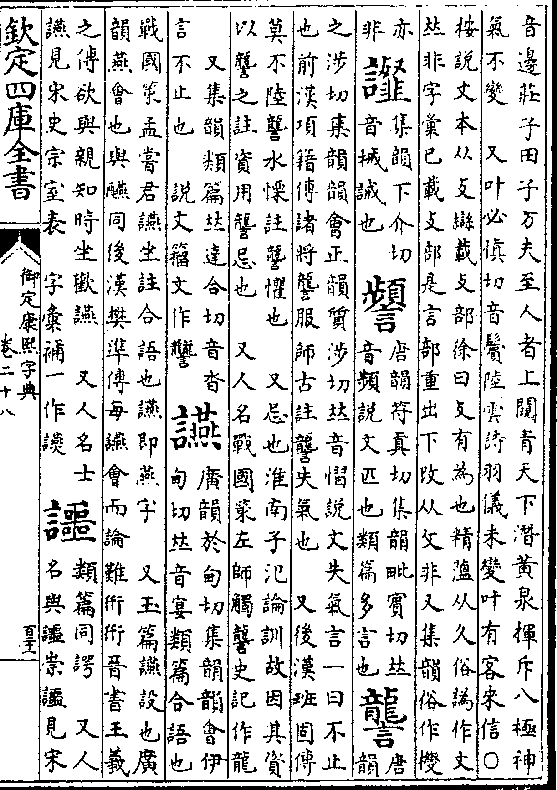 音邊莊子田子方夫至人者上闚青天下潛黃泉揮斥八極神
氣不變　又叶必慎切音鬢陸雲詩羽儀未變叶有客來信○
按說文本从攴䜌載攴部徐曰攴有為也精蘊从久俗譌作文
𠀤非字彙已載攴部是言部重出下攺从攵非又集韻俗作
亦
非
集韻下介切
音械誡也
唐韻符真切集韻毗賓切𠀤
音頻說文匹也類篇多言也
讋
唐
韻
之涉切集韻韻會正韻質涉切𠀤音慴說文失氣言一曰不止
也前漢項籍傳諸將讋服師古註讋失氣也　又後漢班固傳
莫不陸讋水慄註讋懼也　又忌也淮南子氾論訓故因其資
以讋之註資用讋忌也　又人名戰國策左師觸讋史記作龍
又集韻類篇𠀤達合切音沓
言不止也　說文籀文作
讌
廣韻於甸切集韻韻會伊
甸切𠀤音宴類篇合語也
戰國策孟嘗君讌坐註合語也讌即燕字　又玉篇讌設也廣
韻燕會也與醼同後漢樊準傳每讌會而論難衎衎晉書王羲
之傳欲與親知時坐歡讌　又人名士
讌見宋史宗室表　字彙補一作
讍
類篇同諤　又人
名與讍崇讍見宋
欽定四庫全書
御定康熙字典
卷二十八